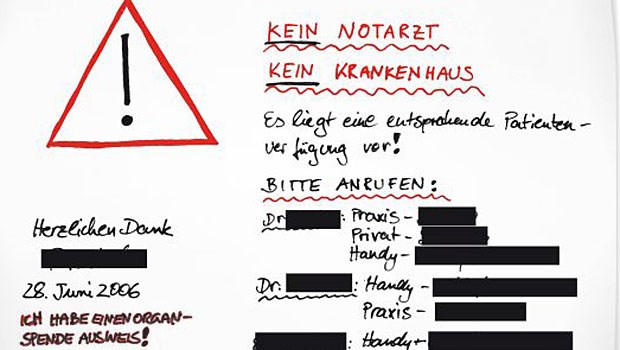 !
KEIN NOTARZT
KEIN KRANKENHAUS
Es liegt eine entsprechende Patienten-
verfügung vor!
BITTE ANRUFEN:
Dr. : Praxis -
Privat -
Handy -
Dr. : Handy -
Praxis -
: Handy -
Herzlichen Dank
28. Juni 2006
ICH HABE EINEN ORGAN-
SPENDE AUSWEIS!